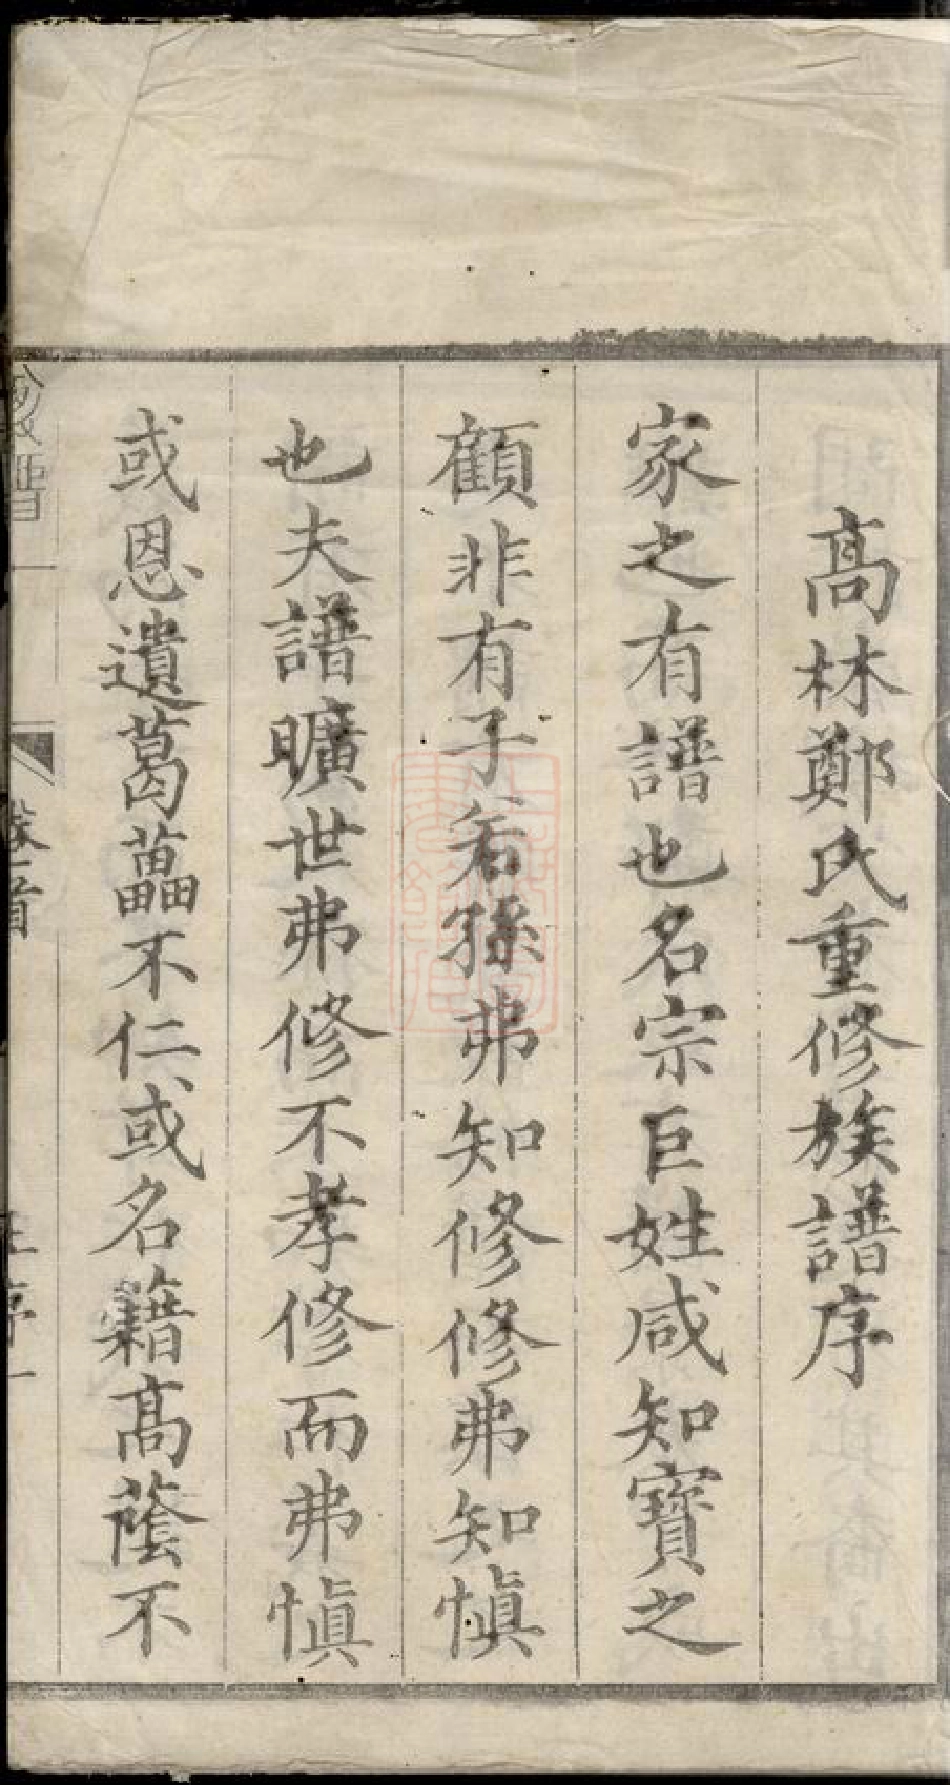 高林鄭氏重修族譜序
家之有譜也名宗巨姓咸知寶之
顧非有子若孫弗知修修弗知慎
也夫譜曠世弗修不孝修而弗慎
或恩遺葛藟不仁或名籍高蔭不
卷首
序一